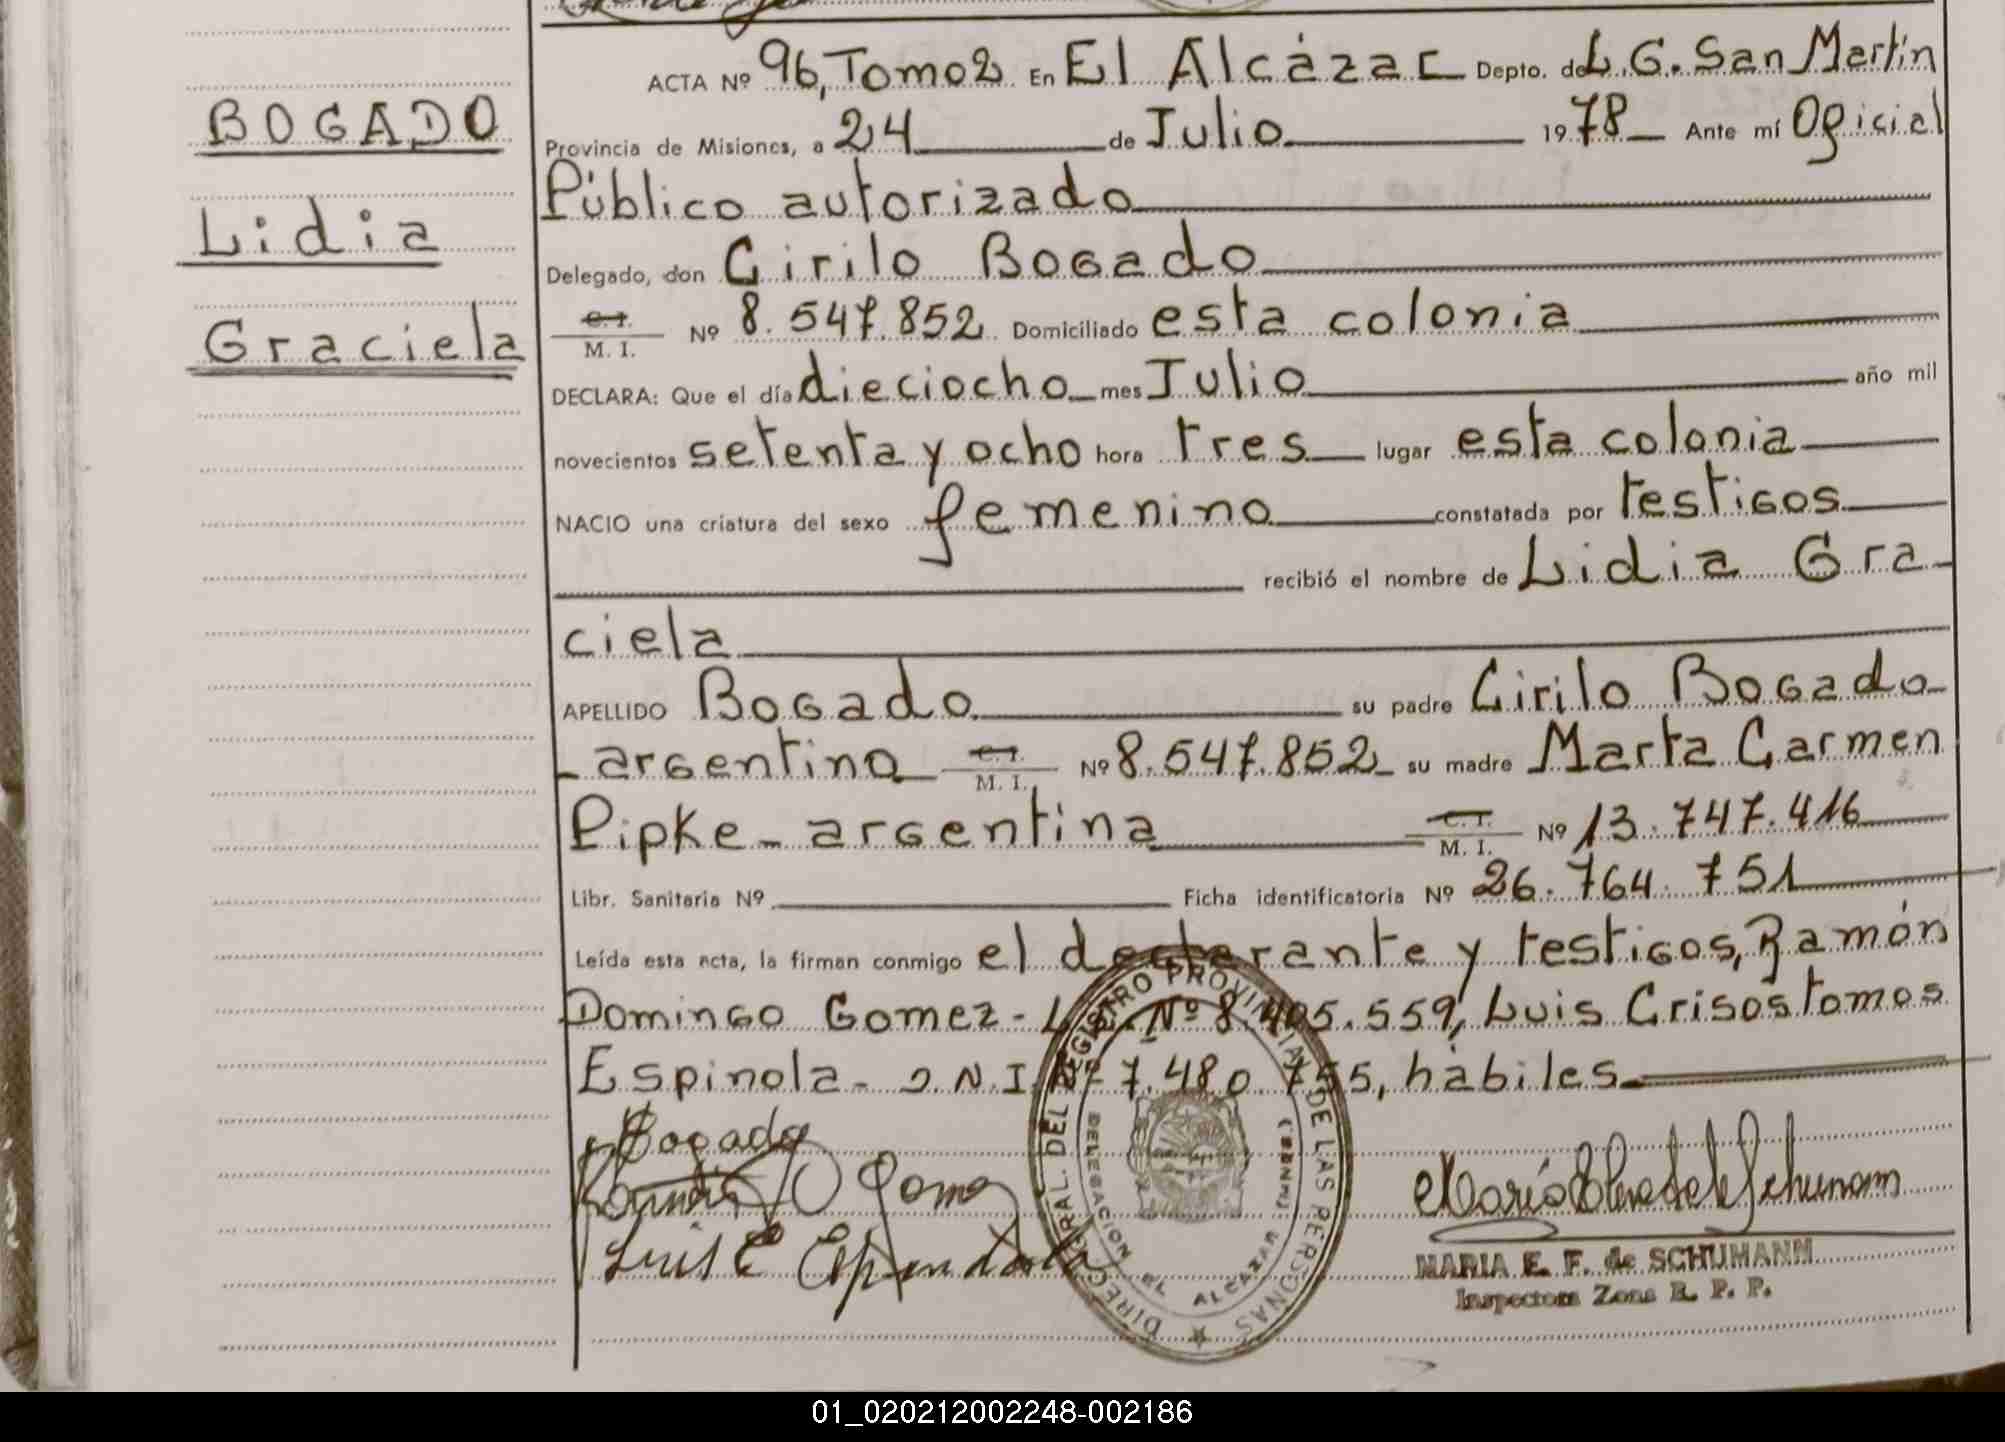 BOGADO
Lidia
Graciela
ACTA Nº 96, Tomo 2 En El Alcázar Depto. de L. G. San Martín
Provincia de Misiones, a 24 de Julio 1978 Ante mí Oficial
Público autorizado
Delegado, don Cirilo Bogado
C. I. M. I. Nº 8.547.852 Domiciliado esta colonia
DECLARA: Que el día dieciocho mes Julio año mil
novecientos setenta y ocho hora tres lugar esta colonia
NACIO una criatura del sexo femenino constatada por testigos
recibió el nombre de Lidia Gra-
ciela
APELLIDO Bogado su padre Cirilo Bogado
- argentino C. I. M. I. Nº 8.547.852 su madre Marta Carmen
Pipke - argentina C. I. M. I. Nº 13.747.416
Libr. Sanitaria Nº Ficha identificatoria Nº 26.764.751
Leída esta acta, la firman conmigo el declarante y testigos, Ramón
Domingo Gomez - L.E. Nº 8.405.559, Luis Crisostomos
Espinola - D.N.I. Nº 7.480.755, hábiles
Bogado
Luis E Espindola
DIREC. GRAL. DEL REGISTRO PROVINCIAL DE LAS PERSONAS
DELEGACION EL ALCAZAR
MARIA E. F. de SCHUMANN
Inspectora Zona R. P. P.
01_020212002248-002186